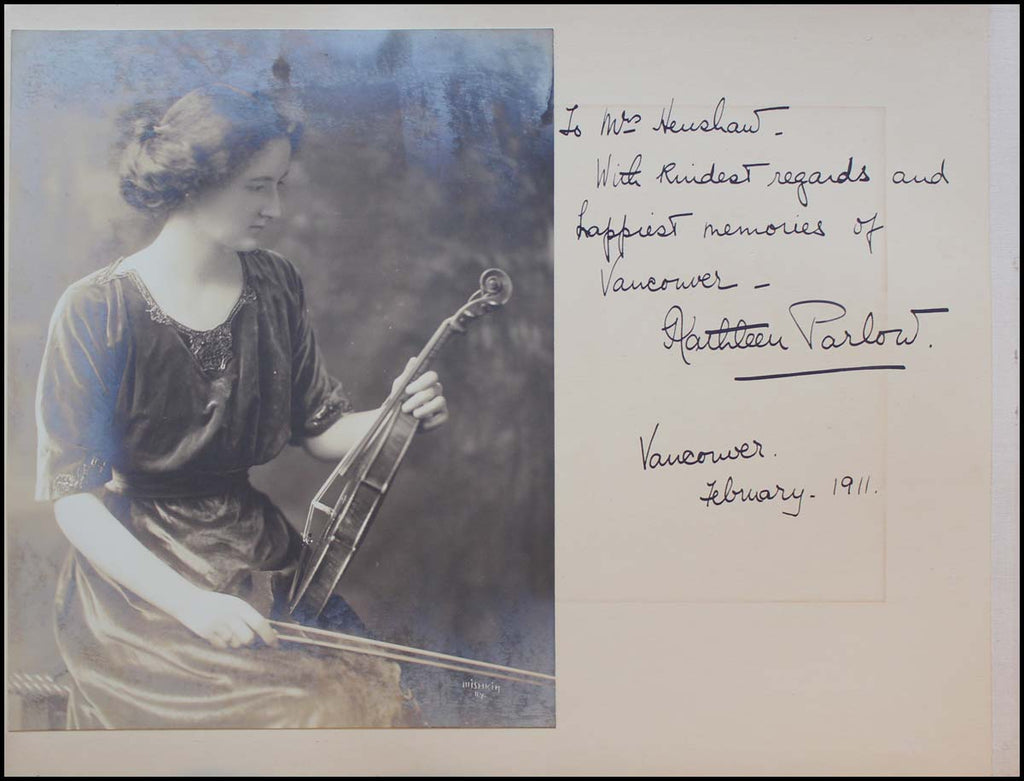 To Mrs Henshaw -
With kindest regards and
happiest memories of
Vancouver -
Kathleen Parlow.
Vancouver.
February - 1911.
MISHKIN
N.Y.